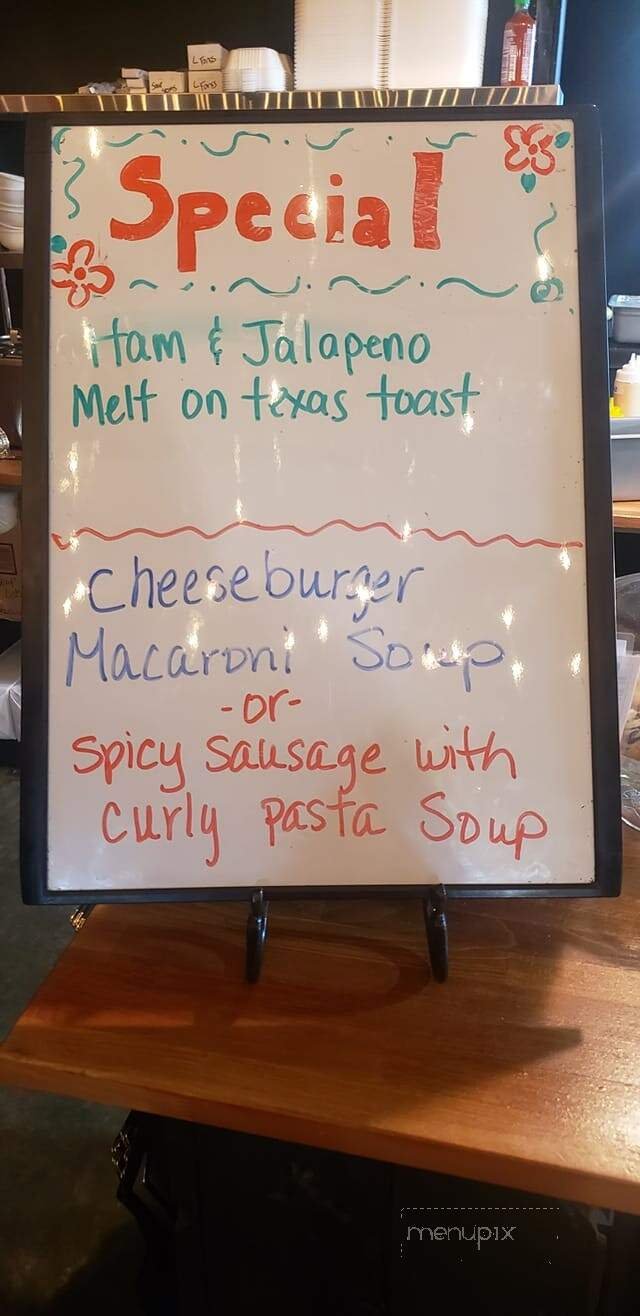 L Tans
L Tans
Special
Ham & Jalapeno
Melt on texas toast
Cheeseburger
Macaroni Soup
-or-
Spicy Sausage with
curly pasta Soup
menupix